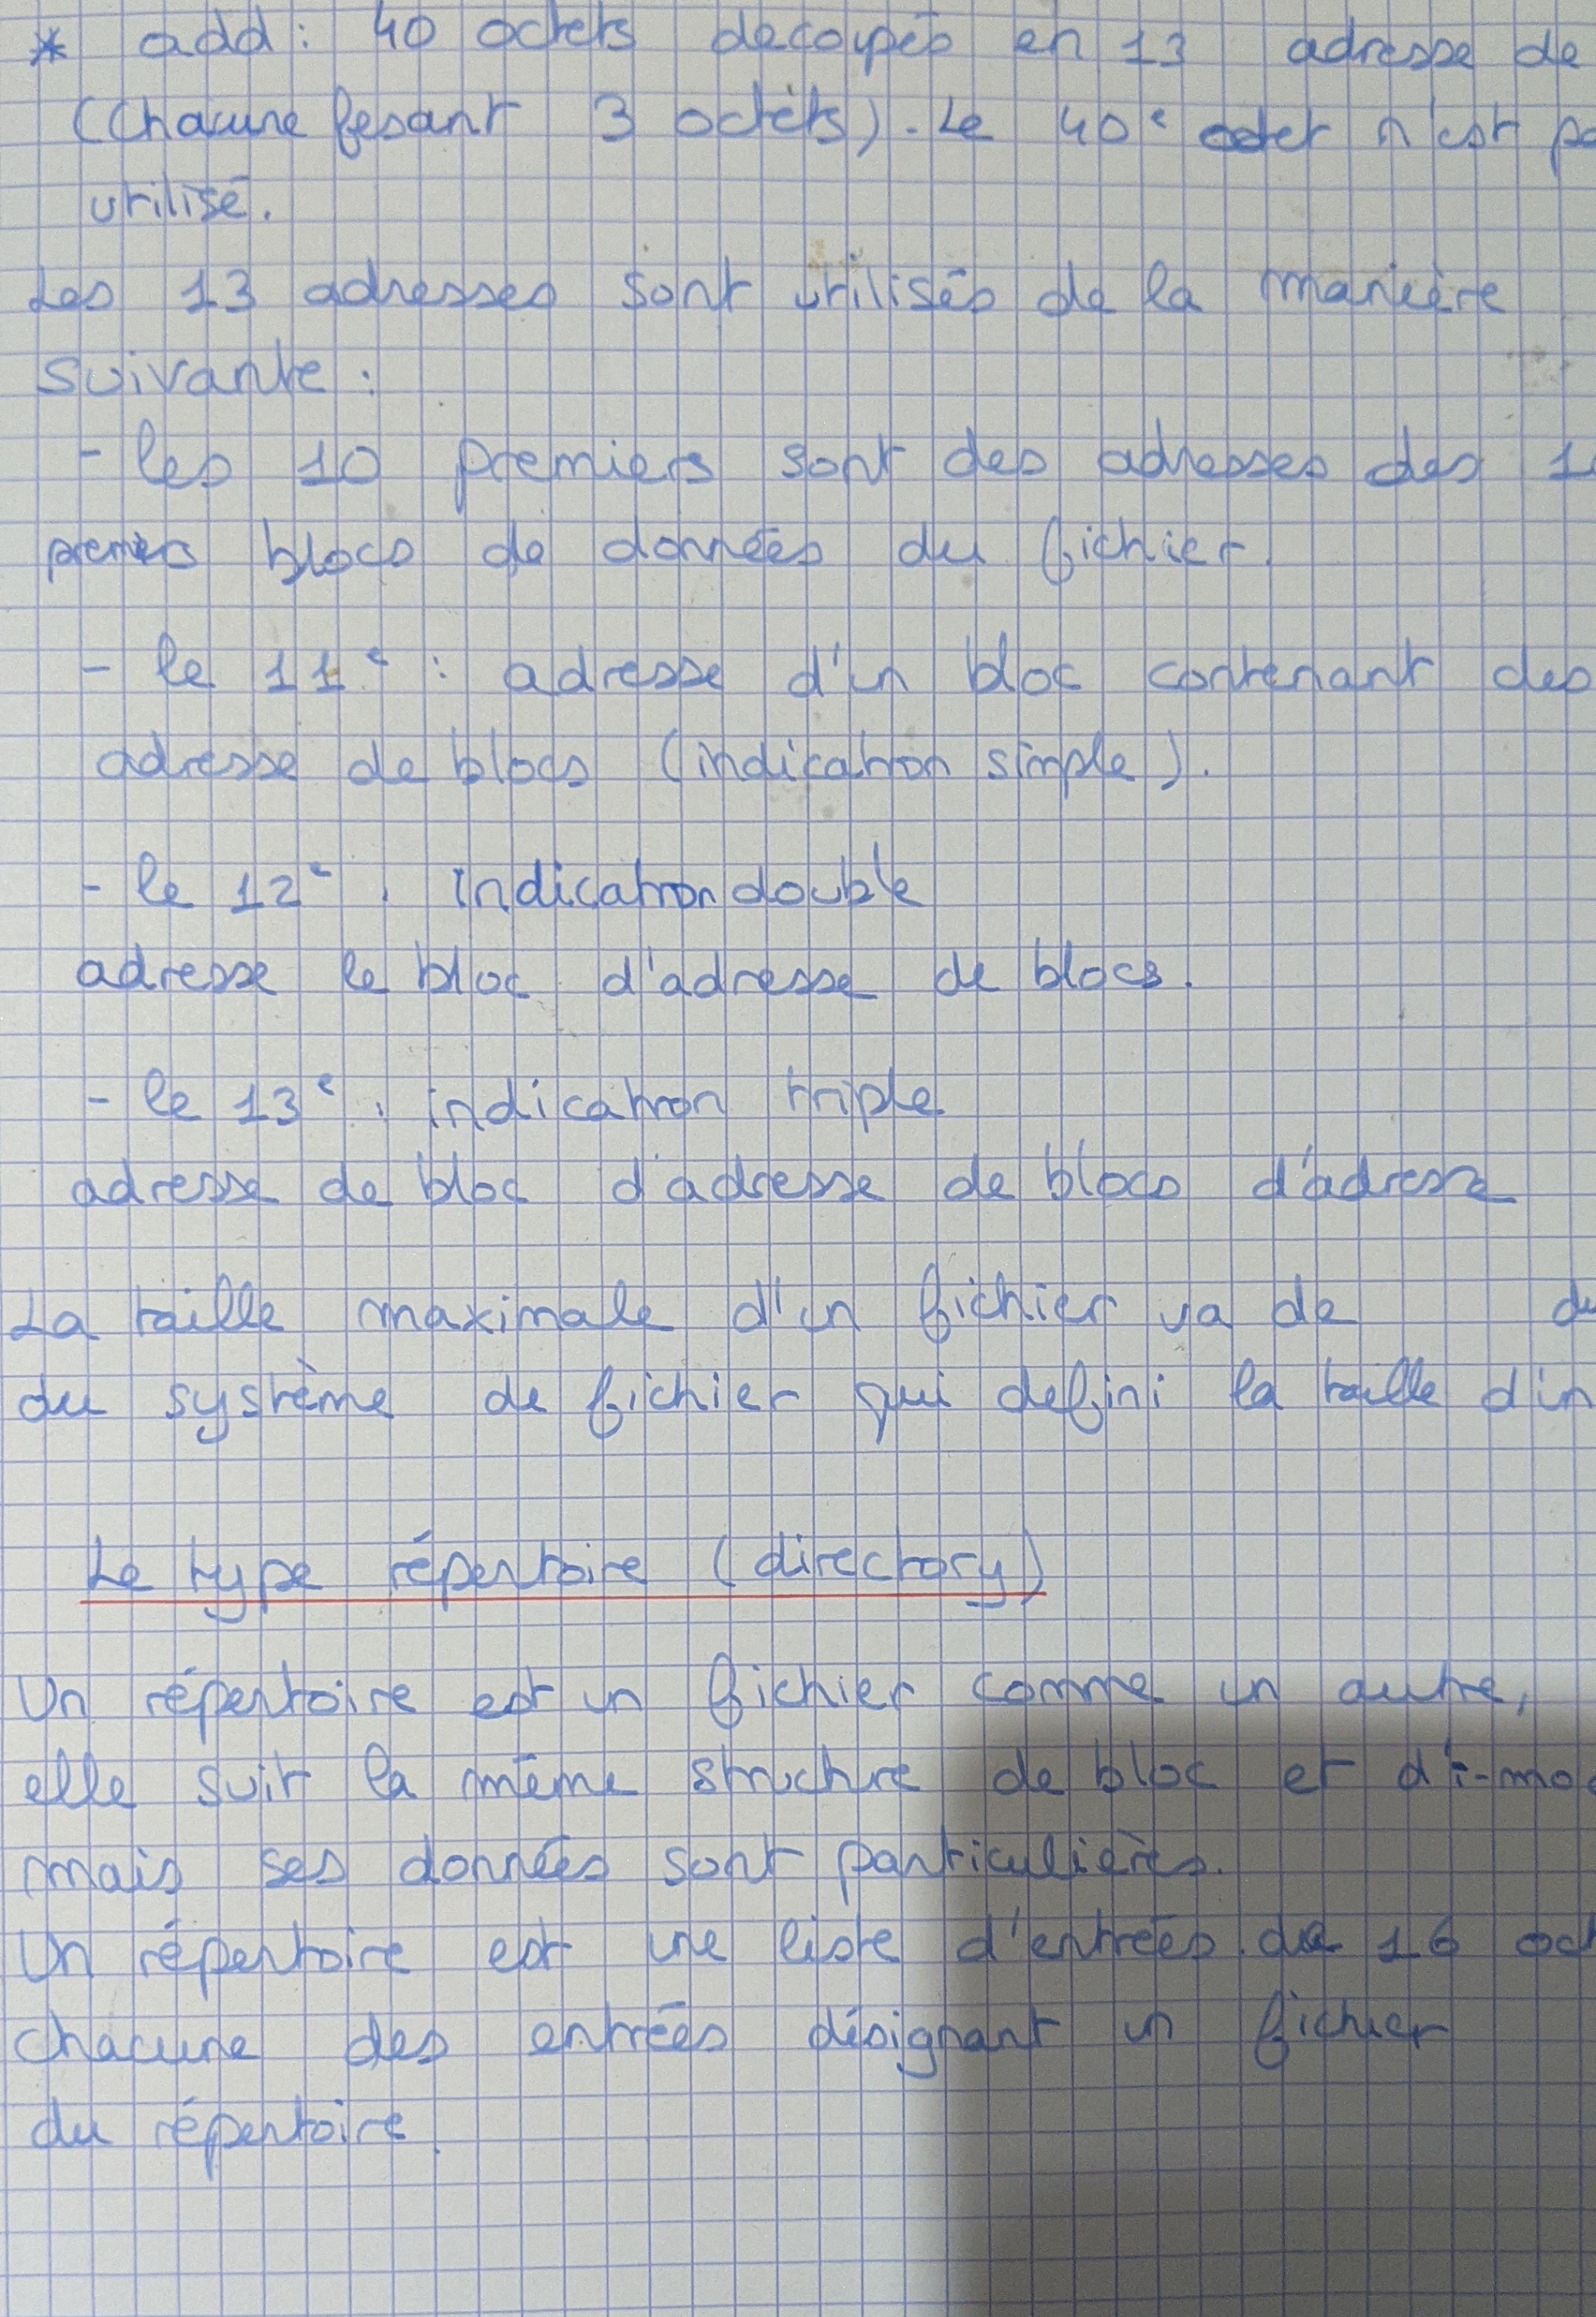 * add : 40 octets decoupés en 13 adresse de
(Chacune fesant 3 octets). Le 40e octet n'est pa
utilisé.
Les 13 adresses sont utilisés de la manière
suivante :
- les 10 premiers sont des adresses des 10
premiers blocs de données du fichier.
- le 11e : adresse d'un bloc contenant des
adresse de blocs (indication simple).
- le 12e : indication double
adresse le bloc d'adresse de blocs.
- le 13e : indication triple
adresse de bloc d'adresse de blocs d'adresse
La taille maximale d'un fichier va de de
du système de fichier qui defini la taille d'un
Le type répertoire (directory)
Un répertoire est un fichier comme un autre,
elle suit la même structure de bloc et d'i-mod
mais ses données sont particulières.
Un répertoire est une liste d'entrées de 16 oct
chacune des entrées désignant un fichier
du répertoire.